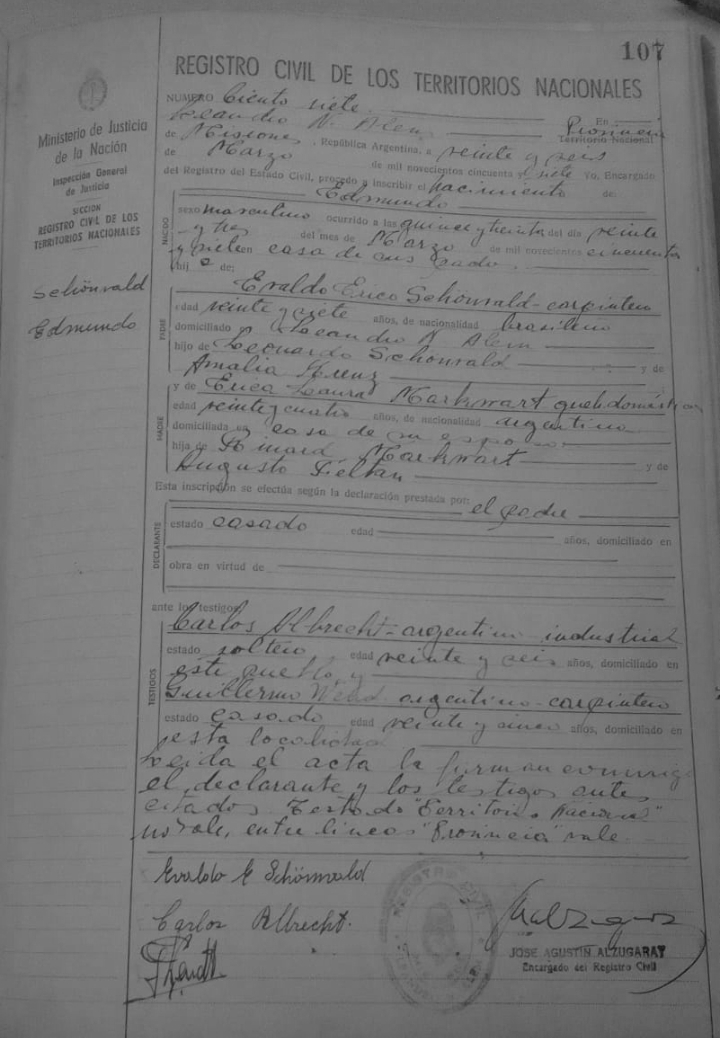 107
REGISTRO CIVIL DE LOS TERRITORIOS NACIONALES
Ministerio de Justicia
de la Nación
Inspección General
de Justicia
SECCION
REGISTRO CIVIL DE LOS
TERRITORIOS NACIONALES
Schönvald
Edmundo
NUMERO Ciento siete. En
Leandro N. Alem Provincia
Territorio Nacional
de Misiones, República Argentina, a veinte y seis
de Marzo de mil novecientos cincuenta y siete Yo, Encargado
del Registro del Estado Civil, procedo a inscribir el nacimiento de:
Edmundo
NACIDO
sexo masculino ocurrido a las quince y treinta del día veinte
y tres del mes de Marzo de mil novecientos cincuenta
y siete en casa de sus
hij o de:
PADRE
Evaldo Erico Schönvald - carpintero
edad veinte y siete años, de nacionalidad brasilero
domiciliado Leandro N Alem
hijo de Leonardo Schönvald y de
Amalia
MADRE
y de Erica Laura Markwart
edad veinte y cuatro años, de nacionalidad argentina
domiciliada en casa de su esposo
hija de Markwart y de
Augusta
Esta inscripción se efectúa según la declaración prestada por: el padre
DECLARANTE
estado casado edad años, domiciliado en
obra en virtud de
ante los testigos
TESTIGOS
Carlos Albrecht - argentino industrial
estado soltero edad veinte y seis años, domiciliado en
este pueblo y
Guillermo argentino - carpintero
estado casado edad veinte y cinco años, domiciliado en
esta localidad
Leida el acta la firman conmigo
el declarante y los testigos antes
citados Testado "Territorio Nacional"
no vale, entre lineas "Provincia" vale.
Evaldo E Schönvald
Carlos Albrecht.
REGISTRO CIVIL
JOSE AGUSTIN ALZUGARAY
Encargado del Registro Civil